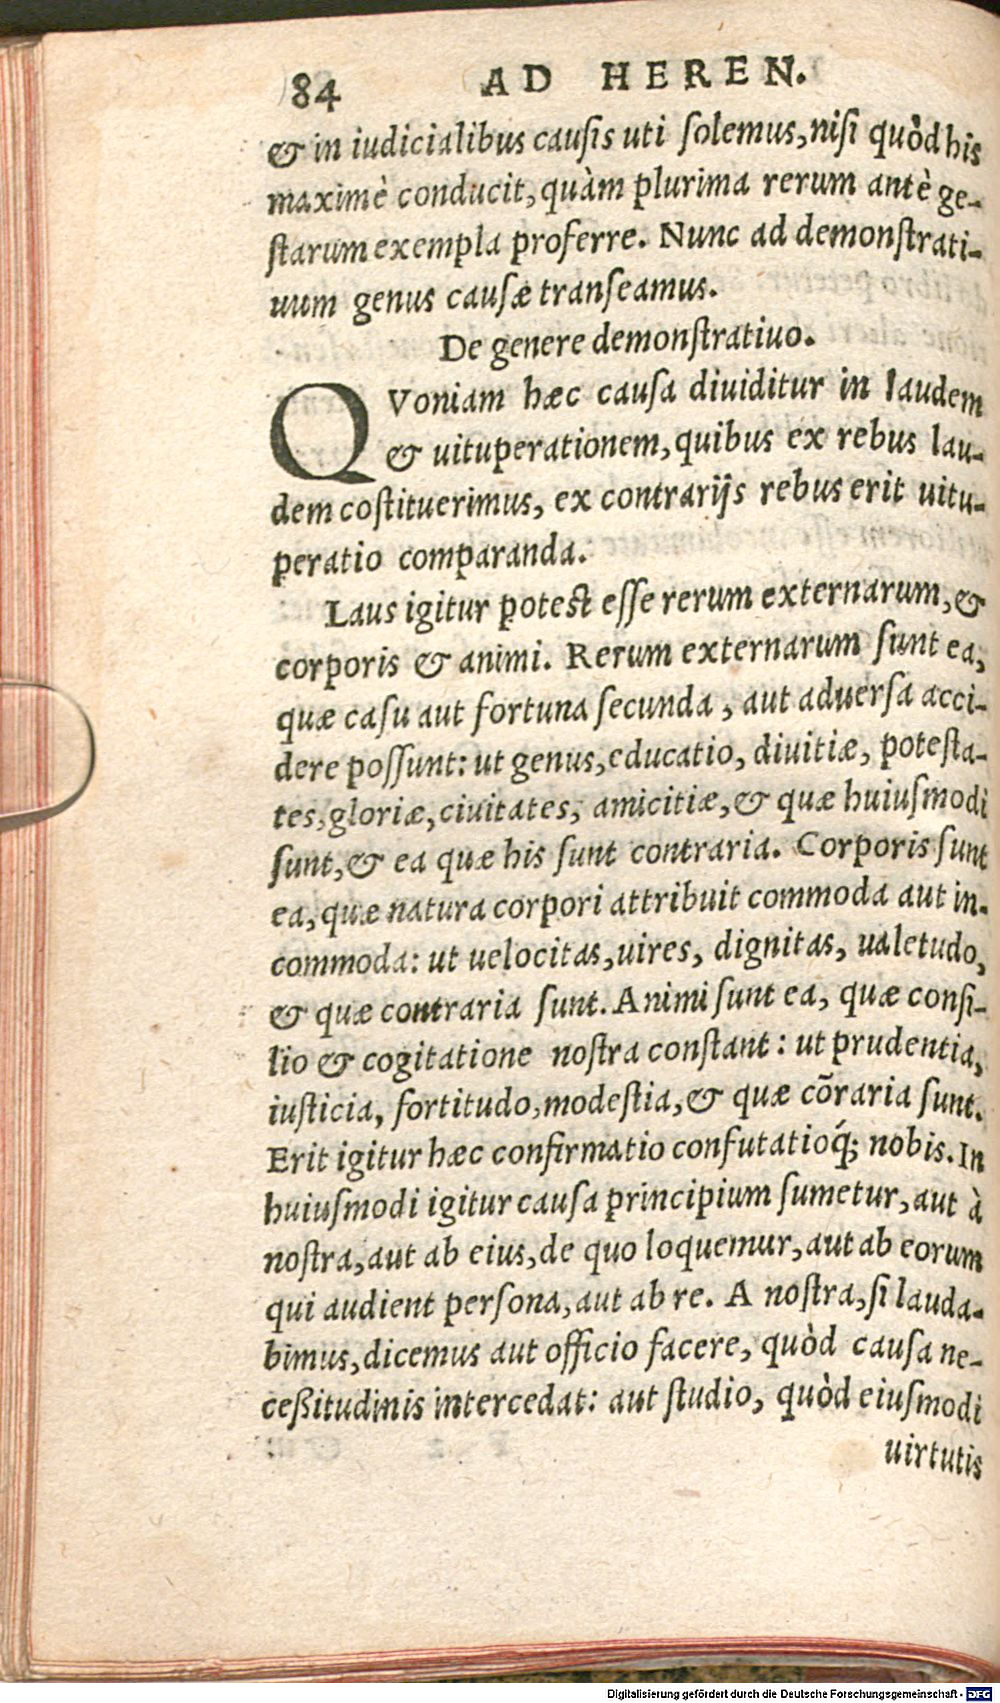 84 AD HEREN.
& in iudicialibus causis uti solemus, nisi quòd his
maximè conducit, quàm plurima rerum antè ge-
starum exempla proferre. Nunc ad demonstrati-
uum genus causæ transeamus.
De genere demonstratiuo.
QVoniam hæc causa diuiditur in laudem
& uituperationem, quibus ex rebus lau-
dem costituerimus, ex contrarijs rebus erit uitu-
peratio comparanda.
Laus igitur potest esse rerum externarum, &
corporis & animi. Rerum externarum sunt ea,
quæ casu aut fortuna secunda, aut aduersa acci-
dere possunt: ut genus, educatio, diuitiæ, potesta-
tes, gloriæ, ciuitates, amicitiæ, & quæ huiusmodi
sunt, & ea quæ his sunt contraria. Corporis sunt
ea, quæ natura corpori attribuit commoda aut in-
commoda: ut uelocitas, uires, dignitas, ualetudo,
& quæ contraria sunt. Animi sunt ea, quæ consi-
lio & cogitatione nostra constant: ut prudentia,
iusticia, fortitudo, modestia, & quæ cōraria sunt.
Erit igitur hæc confirmatio confutatioq́; nobis. In
huiusmodi igitur causa principium sumetur, aut à
nostra, aut ab eius, de quo loquemur, aut ab eorum
qui audient persona, aut ab re. A nostra, si lauda-
bimus, dicemus aut officio facere, quòd causa ne-
ceßitudinis intercedat: aut studio, quòd eiusmodi
uirtutis
Digitalisierung gefördert durch die Deutsche Forschungsgemeinschaft - DFG